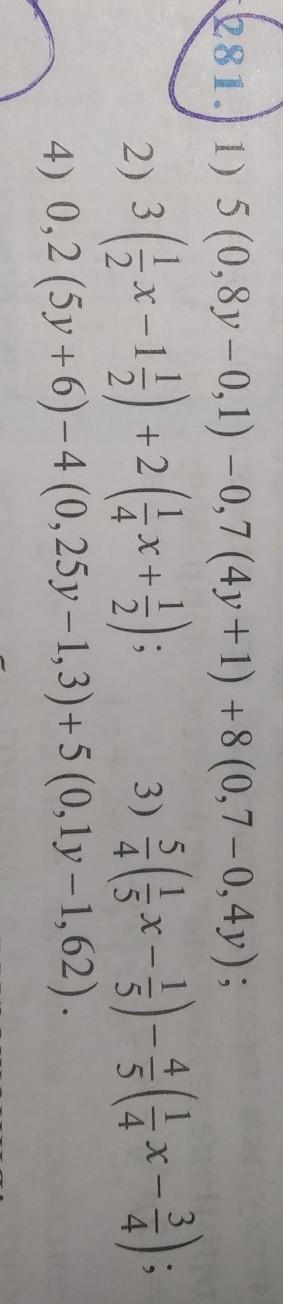 281. 1) 5(0,8y−0,1)−0,7(4y+1)+8(0,7−0,4y);
2) 3(1/2 x−1 1/2)+2(1/4 x+1/2); 3) 5/4(1/5 x−1/5)−4/5(1/4 x−3/4);
4) 0,2(5y+6)−4(0,25y−1,3)+5(0,1y−1,62).